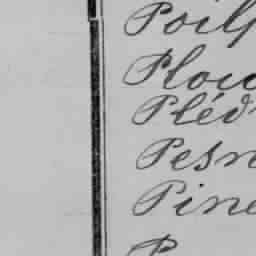 Poilp
Plou
Pléd
Pesn
Pine
P